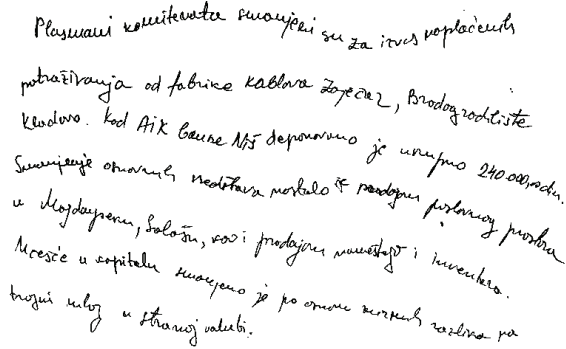 Plasmani komitenata smanjeni su za iznos naplaćenih
potraživanja od fabrike kablova Zaječar, Brodogradilište
Kladovo. Kod AIK banke Niš deponovano je ukupno 240.000,00 din.
Smanjenje osnovnih sredstava nastalo je prodajom poslovnog prostora
u Majdanpeku, Salašu, kao i prodajom nameštaja i inventara.
Učešće u kapitalu smanjeno je po osnovu kursnih razlika na
trojni ulog u stranoj valuti.